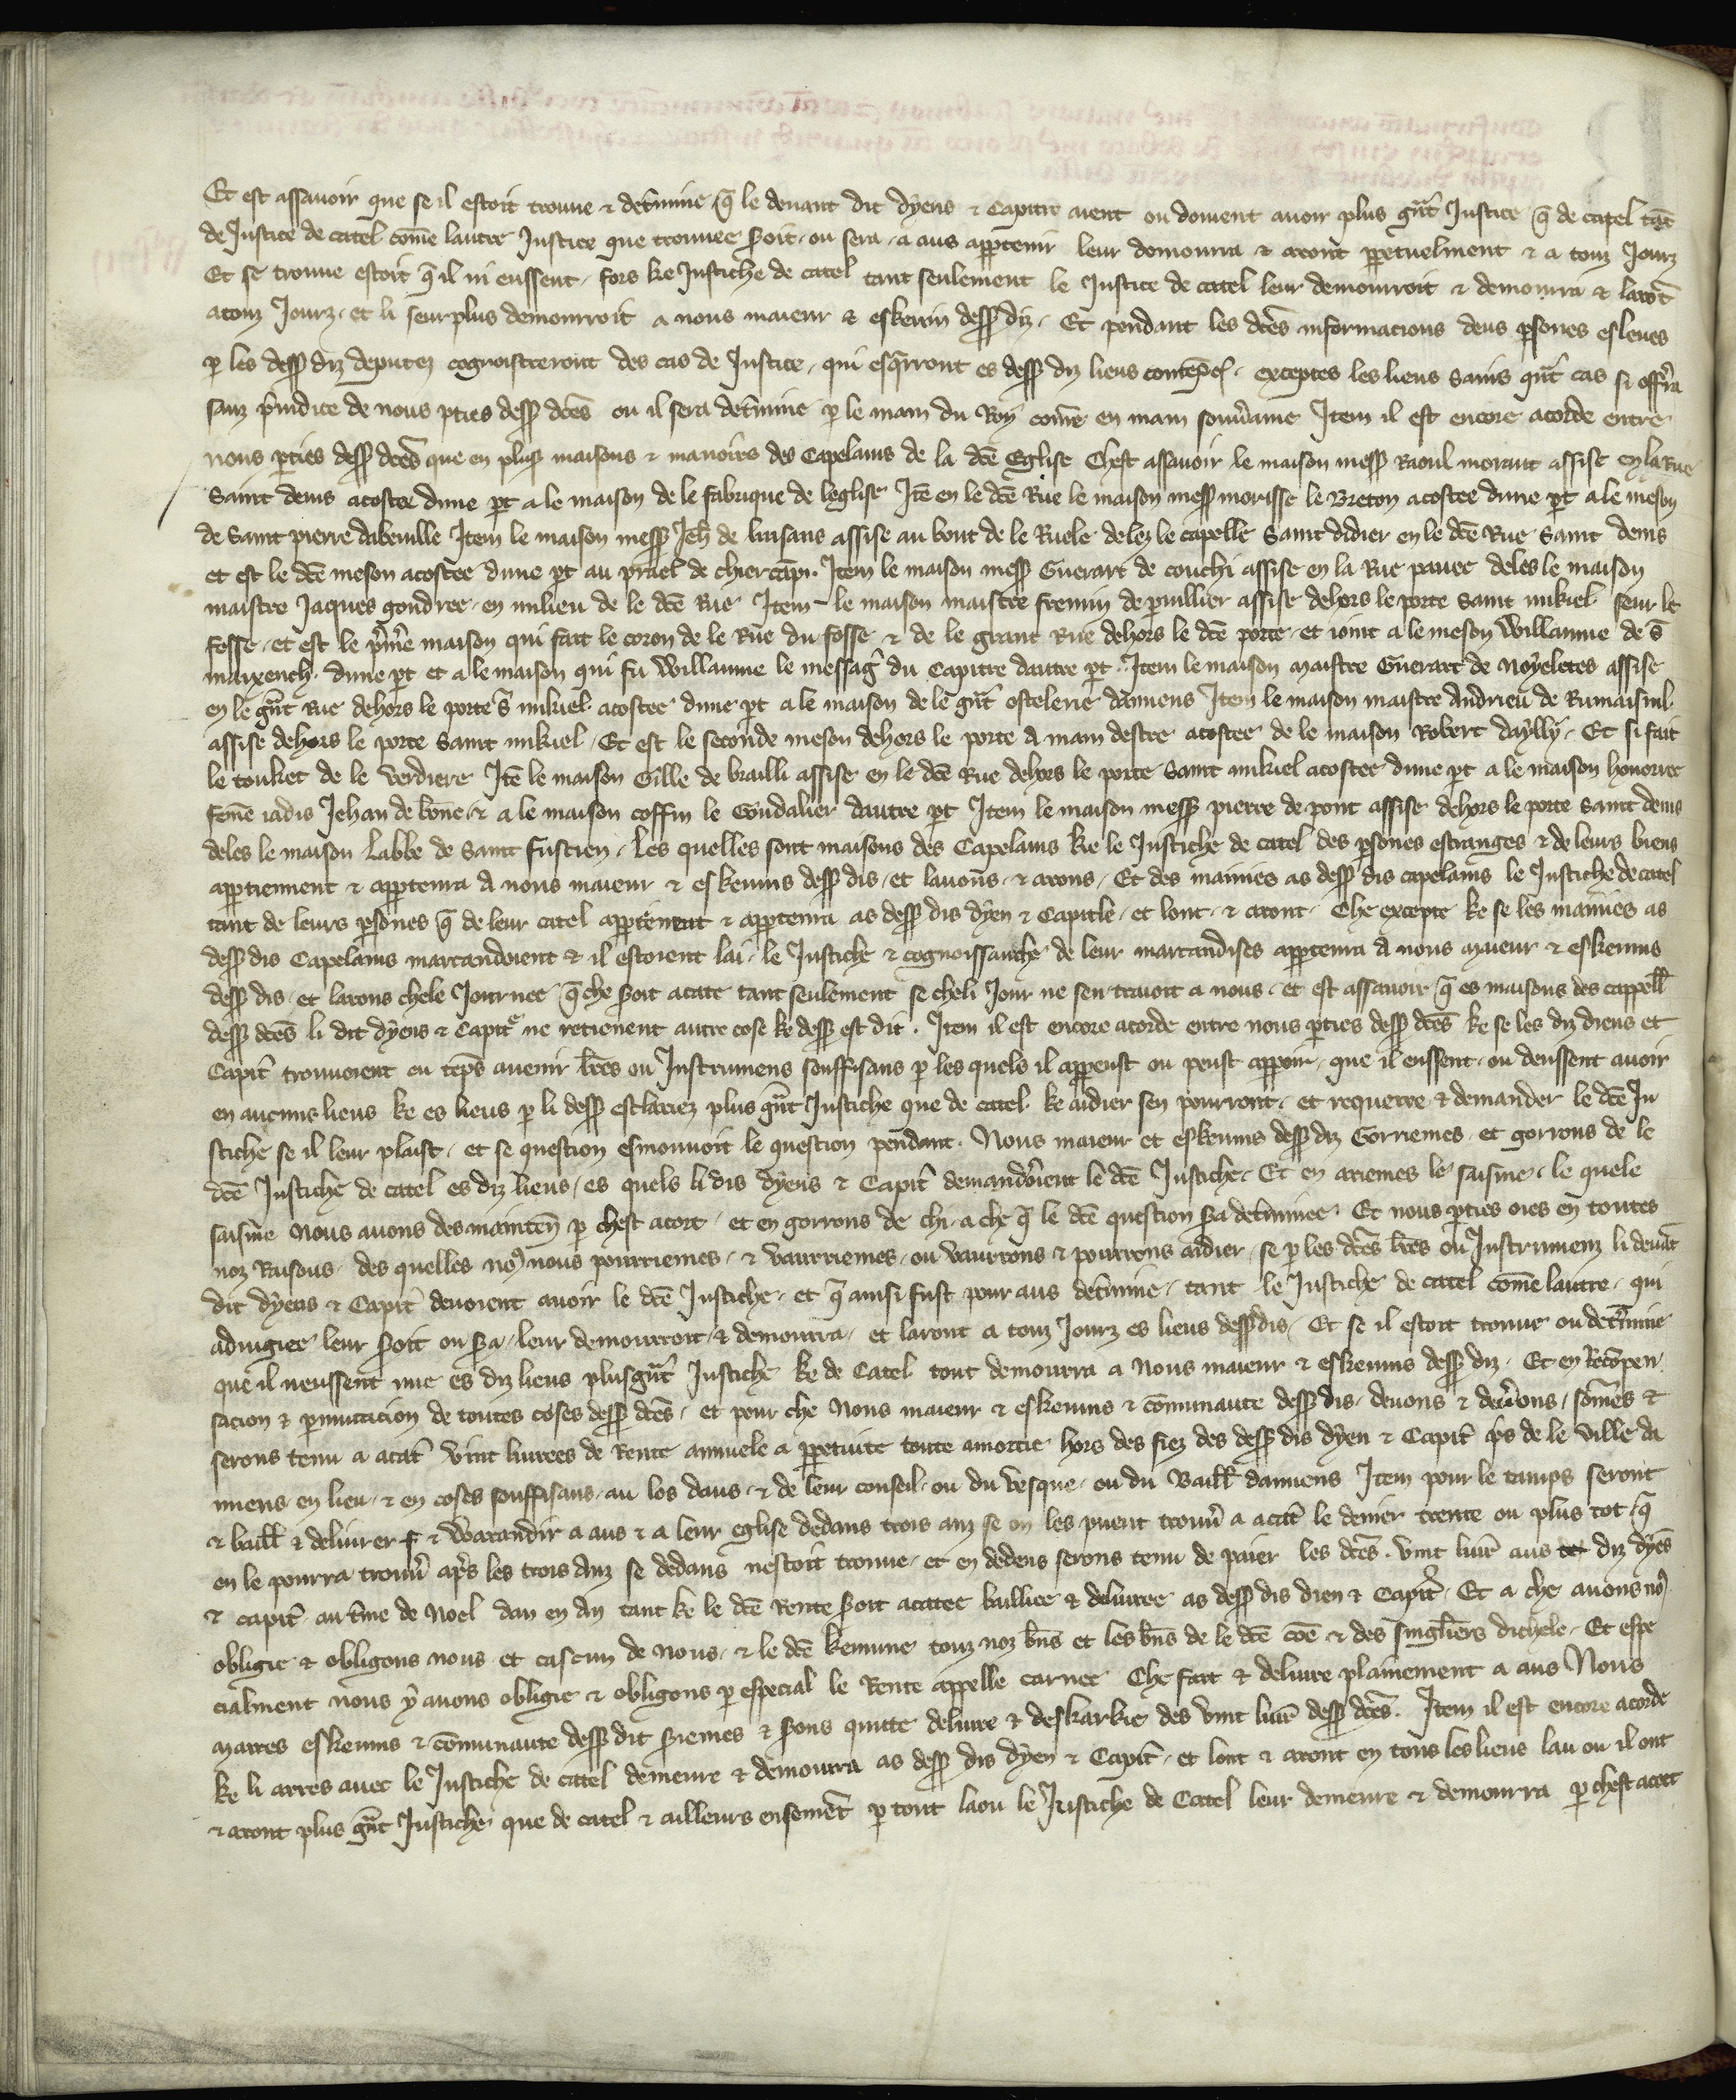 Et est assavoir que se il estoit trouue ⁊ det̄mine q̄ le deuant dit dyens ⁊ Capitre aient ou doiuent auoir plus gr̄nt Justice q̄ de catel tāt
de Justice de catel cōme lautre Justice que trouuee soit · ou sera · a aus app̱tenir leur demourra ⁊ aront pp̱etuelment ⁊ a touz Jourz
Et se trouue estoit q̄ il ni eussent · fors ke Justiche de catel tant seulement le Justice de catel leur demourroit ⁊ demourra ⁊ larōt
atouz Jourz · et li seurplus demourroit a nous maieur ⁊ eskeuin dess̱ diz · Et pendant les dc̄es informacions deus ꝑsones esleues
ꝑ les dess̱ diz deputez cognoisteroint des cas de Justice · qui esq̄rront es dess̱ diz lieus contepẽs · exceptes les lieus sains q̄nt cas si offr̄ra
sanz p̄iudice de nous ꝑties dess̱ dc̄es ou il sera det̄mine ꝑ le main du Roy cōme en main souu̾aine Item il est encore acorde entre
nous ꝑties dess̱ dc̄es que en plus̱ maisons ⁊ manoirs des Capelains de la dc̄e Eglise Chest assauoir le maison mess̱ Raoul morant assise en la Rue
Saint denis acostee dune ꝑt a le maison de le fabrique de leglise Itē en le dc̄e Rue le maison mess̱ morisse le Breton acostee dune ꝑt a le meson
de Saint pierre dabeuille Item le maison mess̱ Jeh̄ de luisans assise au bout de le Ruele delez le capelle Saint didier en le dc̄e Rue Saint denis
et est le dc̄e meson acostee dune ꝑt au prael de chiercāpt · Item le maison mess̱ Guerart de couchi assise en la Rue pauee deles le maison
maistre Jaques gondree · en milieu de le dc̄e Rue Item - le maison maistre fremin de puillier assise dehors le porte Saint mikiel seur le
fosse · et est le p̄m̄e maison qui fait le coron de le Rue du fosse ⁊ de le grant Rue dehors le dc̄e porte · et ioint a le meson Willaume de S̄
maixench · dune ꝑt et a le maison qui fu Willaume le messag̾ du Capitre dautre ꝑt · Item le maison maistre Guerart de Noyeletes assise
en le gr̄nt Rue dehors le porte S̄ mikiel acostee dune ꝑt a le maison de le gr̄nt ostelerie damiens Item le maison maistre Andrieu de Rumaisnil
assise dehors le porte Saint mikiel · Et est le seconde meson dehors le porte a main destre acostee de le maison Robert daylly · Et si fait
le touket de le Verdiere Itē le maison Gille de brailli assise en le dc̄e Rue dehors le porte Saint mikiel acostee dune ꝑt a le maison honouree
fēme iadis Jehan de bōne · ⁊ a le maison coffin le Goudalier dautre ꝑt Item le maison mess̱ pierre de pont assise dehors le porte Saint denis
deles le maison Labbe de Saint fuscien · Les quelles sont maisons des Capelains ke le Justiche de catel des ꝑsones estranges ⁊ de leurs biens
app̱tiennent ⁊ app̱tenra a nous maieur ⁊ eskeuins dess̱ dis · et lauons · ⁊ arons · Et des mainies as dess̱ dis capelains le Justiche de catel
tant de leurs ꝑsones q̄ de leur catel app̱tient ⁊ app̱tenra as dess̱ dis dyen ⁊ Capitle · et lont · ⁊ aront · Che excepte ke se les mainies as
dess̱ dis Capelains marcandoient ⁊ il estoient lai · le Justiche ⁊ cognoissanche de leur marcandises app̱tenra a nous maieur ⁊ eskeuins
dess̱ dis · et larons chele Journee q̄ che soit acate tant seulement se cheli Jour ne sen traioit a nous · et est assauoir q̄ es maisons des cappell̄
dess̱ dc̄es li dit dyens ⁊ Capitr̄ ne retienent autre cose ke dess̱ est dit · Item il est encore acorde entre nous ꝑties dess̱ dc̄es ke se les diz diens et
Capit̄ trouuoient en tēps auenir lr̄es ou Instrumens souffisans ꝑ les quels il appeust ou peust apparoir · que il eussent · ou deussent auoir
en aucuns lieus ke es lieus ꝑ li dess̱ esclariez plus gr̄nt Justiche que de catel ke aidier sen pourront · et requerre ⁊ demander le dc̄e Ju
stiche se il leur plaist · et se question esmouuoit le question pendant · Nous maieur et eskeuins dess̱ diz Gorriemes · et gorrons de le
dc̄e Justiche de catel es diz lieus · es quels li dis dyens ⁊ Capit̄ demandr̄ient le dc̄e Justiche · Et en ariemes le saisine · le quele
saisine Nous auons des mainten̄ ꝑ chest acort · et en gorrons de chi · a che q̄ le dc̄e question s̄ra det̄minee · Et nous ꝑties oies en toutes
noz Raisons · des quelles noꝰ nous pourriemes · ⁊ vaurriemes · ou vaurrons ⁊ pourrons aidier · se ꝑ les dc̄es lr̄es ou Instrumenz li deuāt
dit dyens ⁊ Capit̄ deuoient auoir le dc̄e Justiche · et q̄ ainsi fust pour aus det̄mine · tant le Justiche de catel cōme lautre · qui
adiugiee leur soit ou s̄ra · leur demourroit · ⁊ demourra · et laront a touz Jourz es lieus dess̱ dis · Et se il estoit trouue ou det̄mine
que il neussent mie es diz lieus plus gr̄nt Justiche ke de Catel tout demourra a Nous maieur ⁊ eskeuins dess̱ diz · Et en Recōpen
sacion ⁊ ꝑmutacion de toutes coses dess̱ dc̄es · et pour che Nous maieur ⁊ eskeuins ⁊ cōmunaute dess̱ dis · deuons ⁊ deu̾ons · sōmes ⁊
serons tenu a acat̄ Vint liurees de Rente annuele a pp̱etuite toute amortie hors des fiez des dess̱ dis dyen ⁊ Capit̄ p̄s de le Ville da
miens · en lieu · ⁊ en coses souffisans · au los daus · ⁊ de leur conseil · ou du Vesque · ou du Baill̄ damiens Item pour le tamps seront
⁊ baill̄ ⁊ deliurer ⁊ Warandir a aus ⁊ a leur eglise dedans trois anz se on les puent trouu̾ a acat̄ le denier trente ou plus tot · q̄
en le pourra trouu̾ apr̄s les trois Anz se dedans nestoit trouue · et en dedens serons tenu de paier les dc̄es · Vint liur̄ aus diz dyēs
⁊ capit̄ · au t̄me de Noel dan en An tant ke le dc̄e Rente soit acatee bailliee ⁊ deliuree as dess̱ dis dien ⁊ Capit̄ · Et a che auons noꝰ
obligie ⁊ obligons nous et cascun de Nous · ⁊ le dc̄e kemune touz noz bn̄s et les bn̄s de le dc̄e cōe ⁊ des singlīers dichele · Et espe
cialment nous y auons obligie ⁊ obligons ꝑ especial le Rente appelle carnee Che fait ⁊ deliure plainement a aus Nous
Maires eskeuins ⁊ cōmunaute dess̱ dit s̄riemes ⁊ s̄rons quitte deliure ⁊ deskarkie des Vint liur̄ dess̱ dc̄es · Item il est encore acorde
ke li arres auec le Justiche de catel demeure ⁊ demourra as dess̱ dis dyen ⁊ Capit̄ · et lont ⁊ aront en tous les lieus lau ou il ont
⁊ aront plus gr̄nt Justiche que de catel ⁊ ailleurs ensemēt ꝑ tout laou le Justiche de Catel leur demeure ⁊ demourra ꝑ chest acort